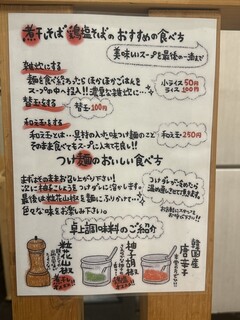 煮干しそば 鶏塩そばのおすすめの食べ方
美味しいスープを最後の一滴まで
雑炊にする
麺を食べ終わったらほかほかごはんを
スープの中へ投入!!濃厚な雑炊に…
小ライス50円
ライス100円
替玉をする
替玉100円
和え玉をする
和え玉とは…具材の入れた味つけ麺のこと
そのまま食べてもスープに入れて良し!!
和え玉250円
つけ麺のおいしい食べ方
まずはそのままお召し上がり下さい!
次に柚子こしょうをつけダレに溶かします。
最後は粗花山椒を麺にふりかけて…
色々な味をお楽しみ下さい。
つけダレが冷めたら
卓上調味料のご紹介
粗花山椒
柚子胡椒
韓国産
唐辛子